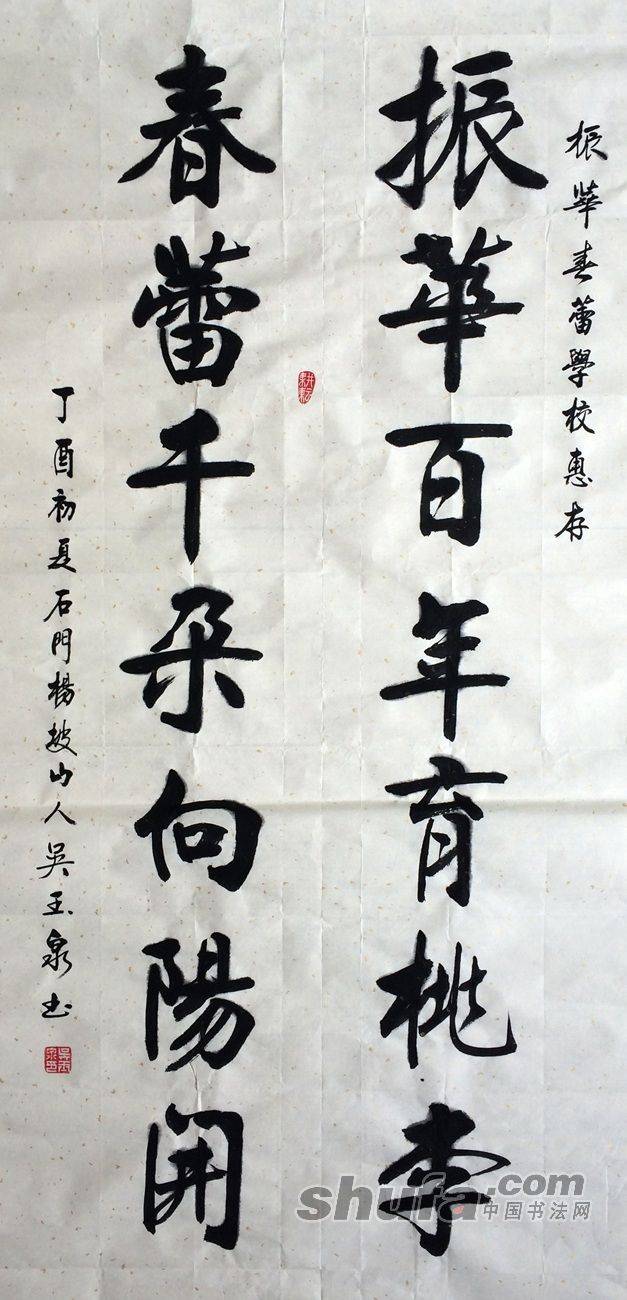 振華春蕾學校惠存
振華百年育桃李
春蕾千朵向陽開
丁酉初夏石門楊坡山人吴玉泉书
耕耘
shufa.com
中国书法网